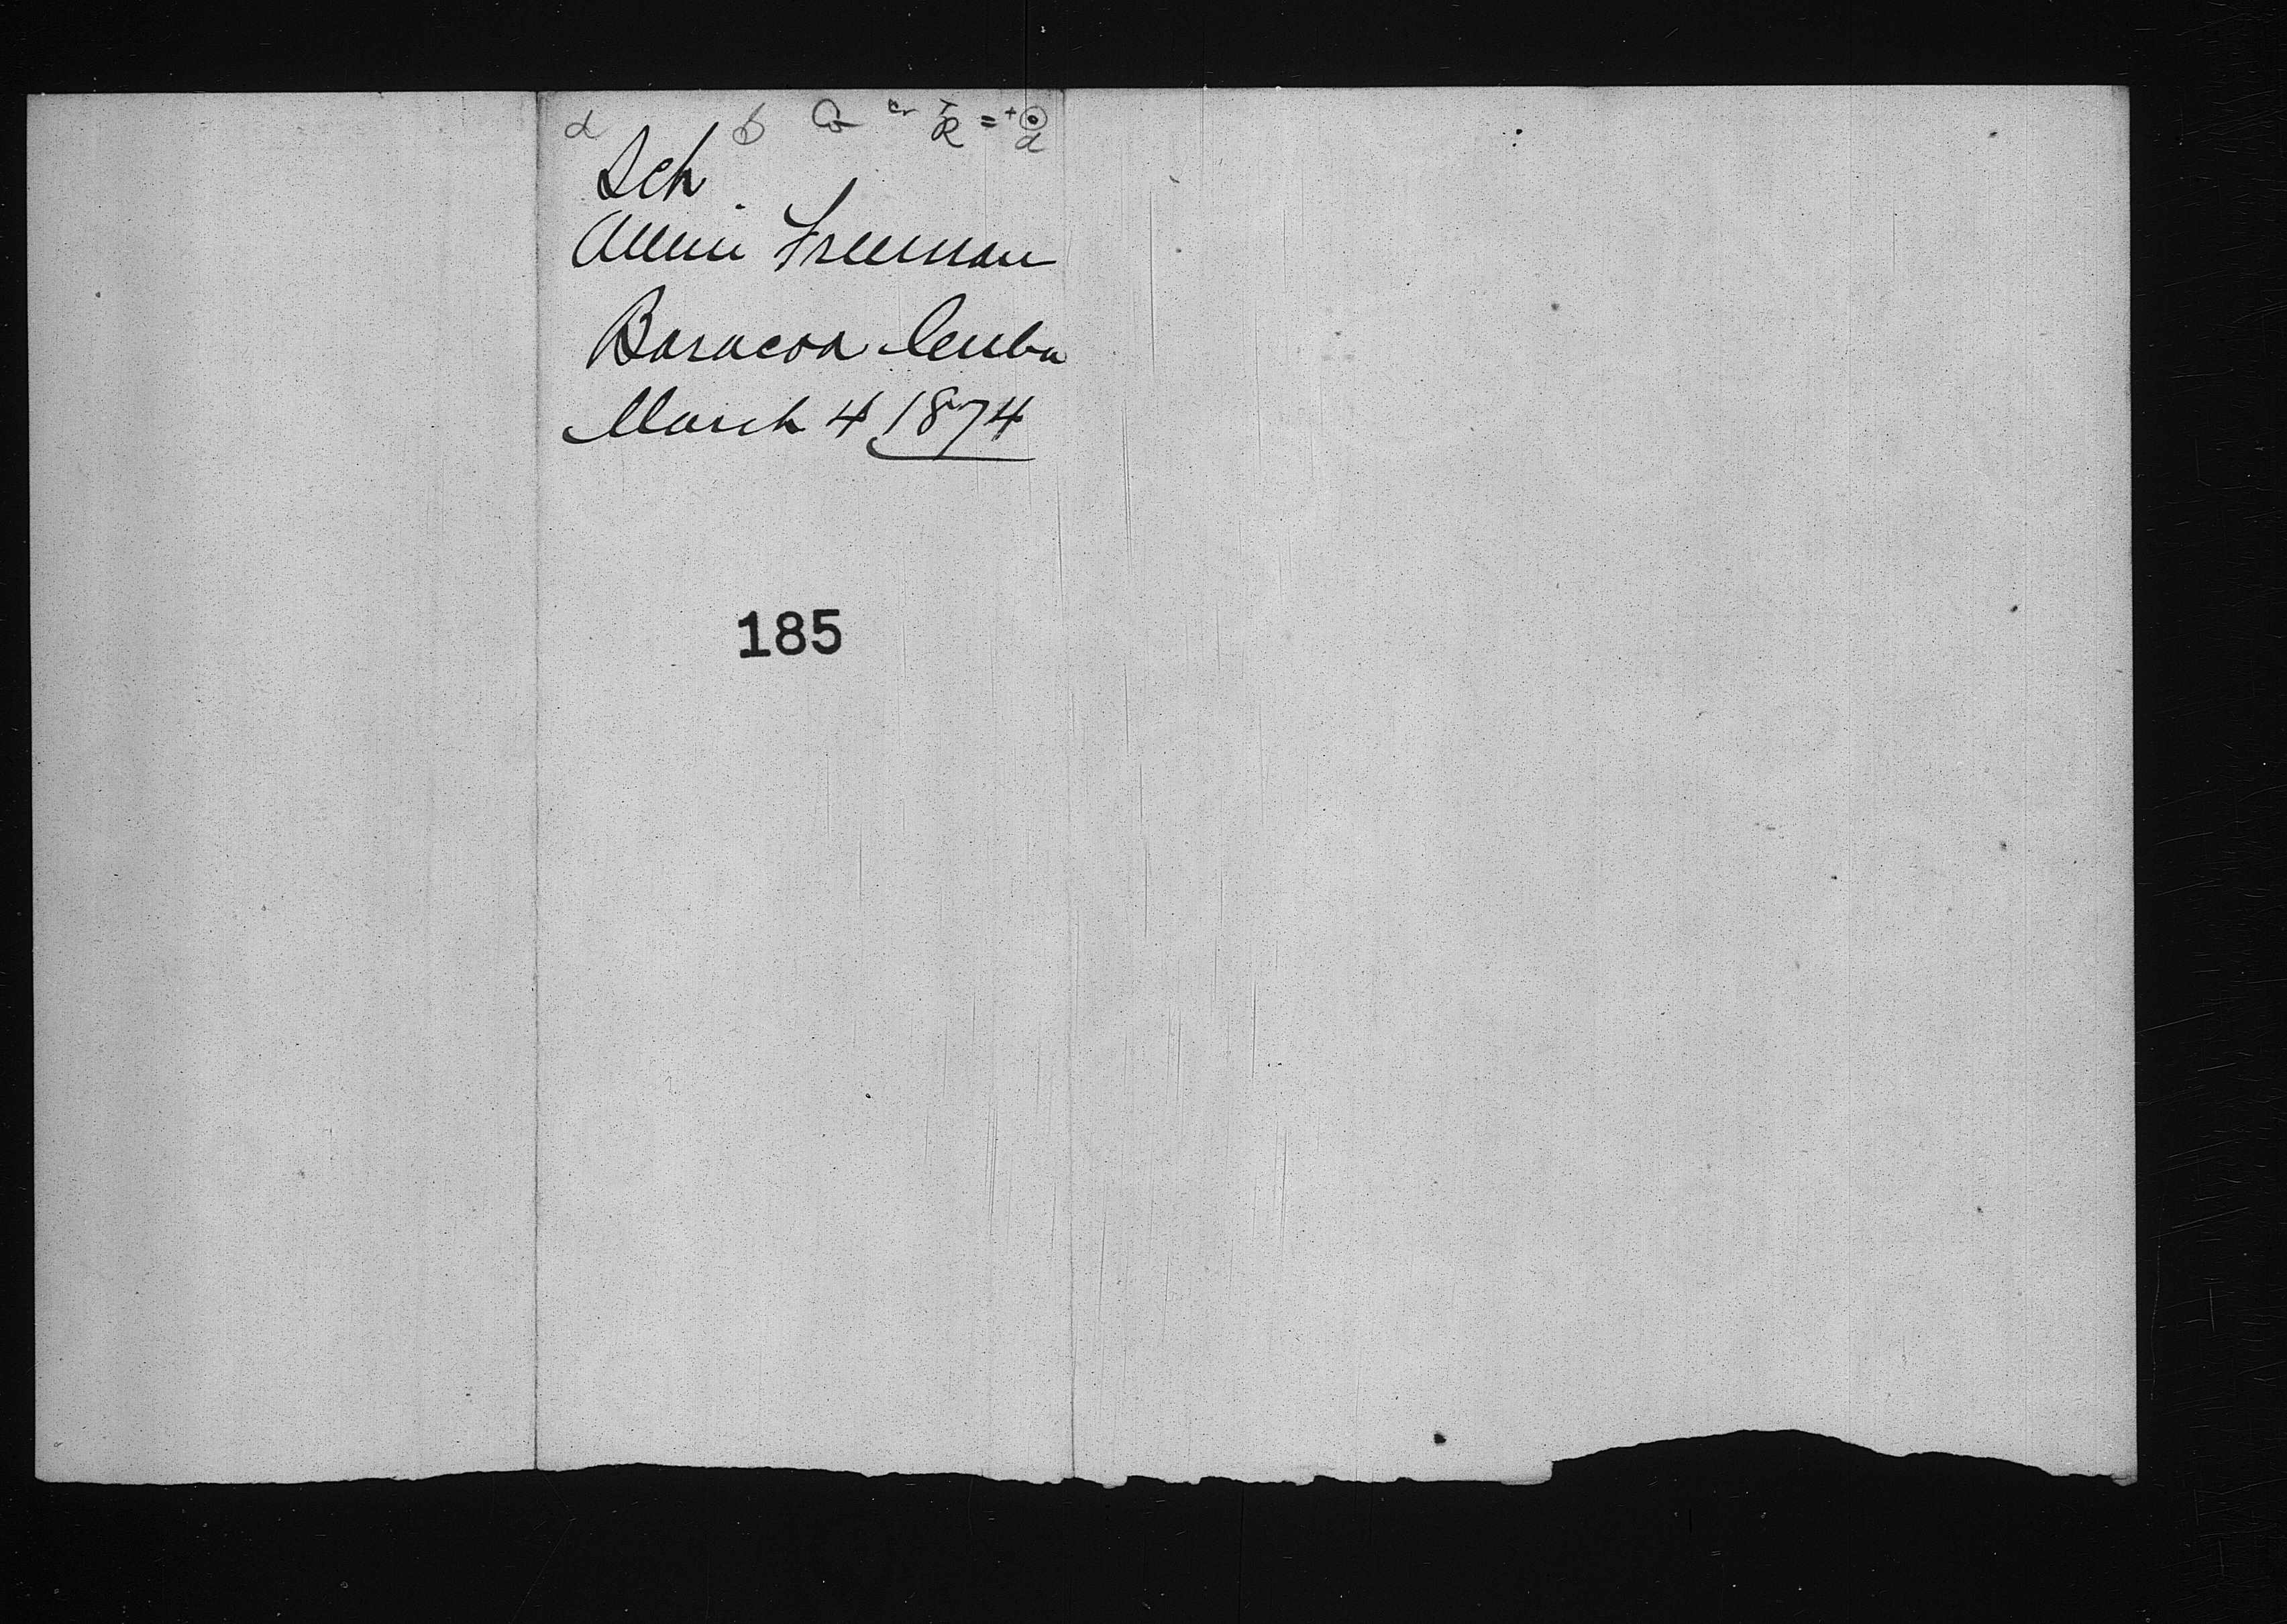 Sch
Freeman
Baracoa Cuba
March 4 1874
185